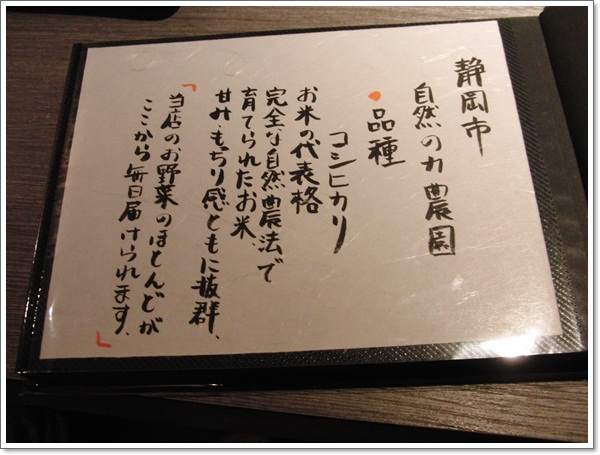 静岡市
自然の力農園
・品種
コシヒカリ
お米の代表格
完全な自然農法で
育てられたお米、
甘みもちり感ともに抜群、
「当店のお野菜のほとんどが
ここから毎日届けられます、」